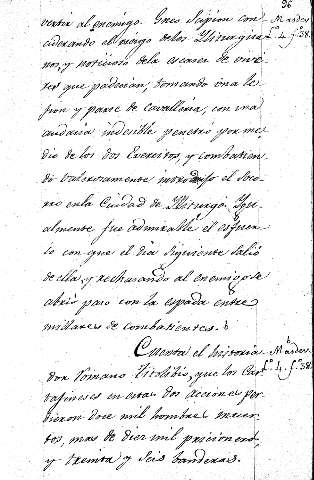 96
vertir al enemigo. Cneo Scipion con-
siderando el riesgo de los Yliturgita-
nos, y noticioso de la escasez de vive-
res que padecian, tomando una le-
gion y parte de Cavalleria, con una
audacia indecible penetró por me-
dio de los dos Exercitos, y combatien-
do valerosamente introduxo el soco-
rro en la Ciudad de Yliturgo. Ygu-
almente fue admirable el esfuer-
zo con que el dia siguiente salió
de ella, y rechazando al enemigo se
abrió paso con la espada entre
millares de combatientes. b
Cuenta el historia-
dor Romano Titolibio, que los Car-
tagineses en estas dos acciones per-
dieron doce mil hombres muer-
tos, mas de diez mil pricioneros,
y treinta y seis banderas.
f.º 4. f.º 38.
f.º 4. f.º 38.